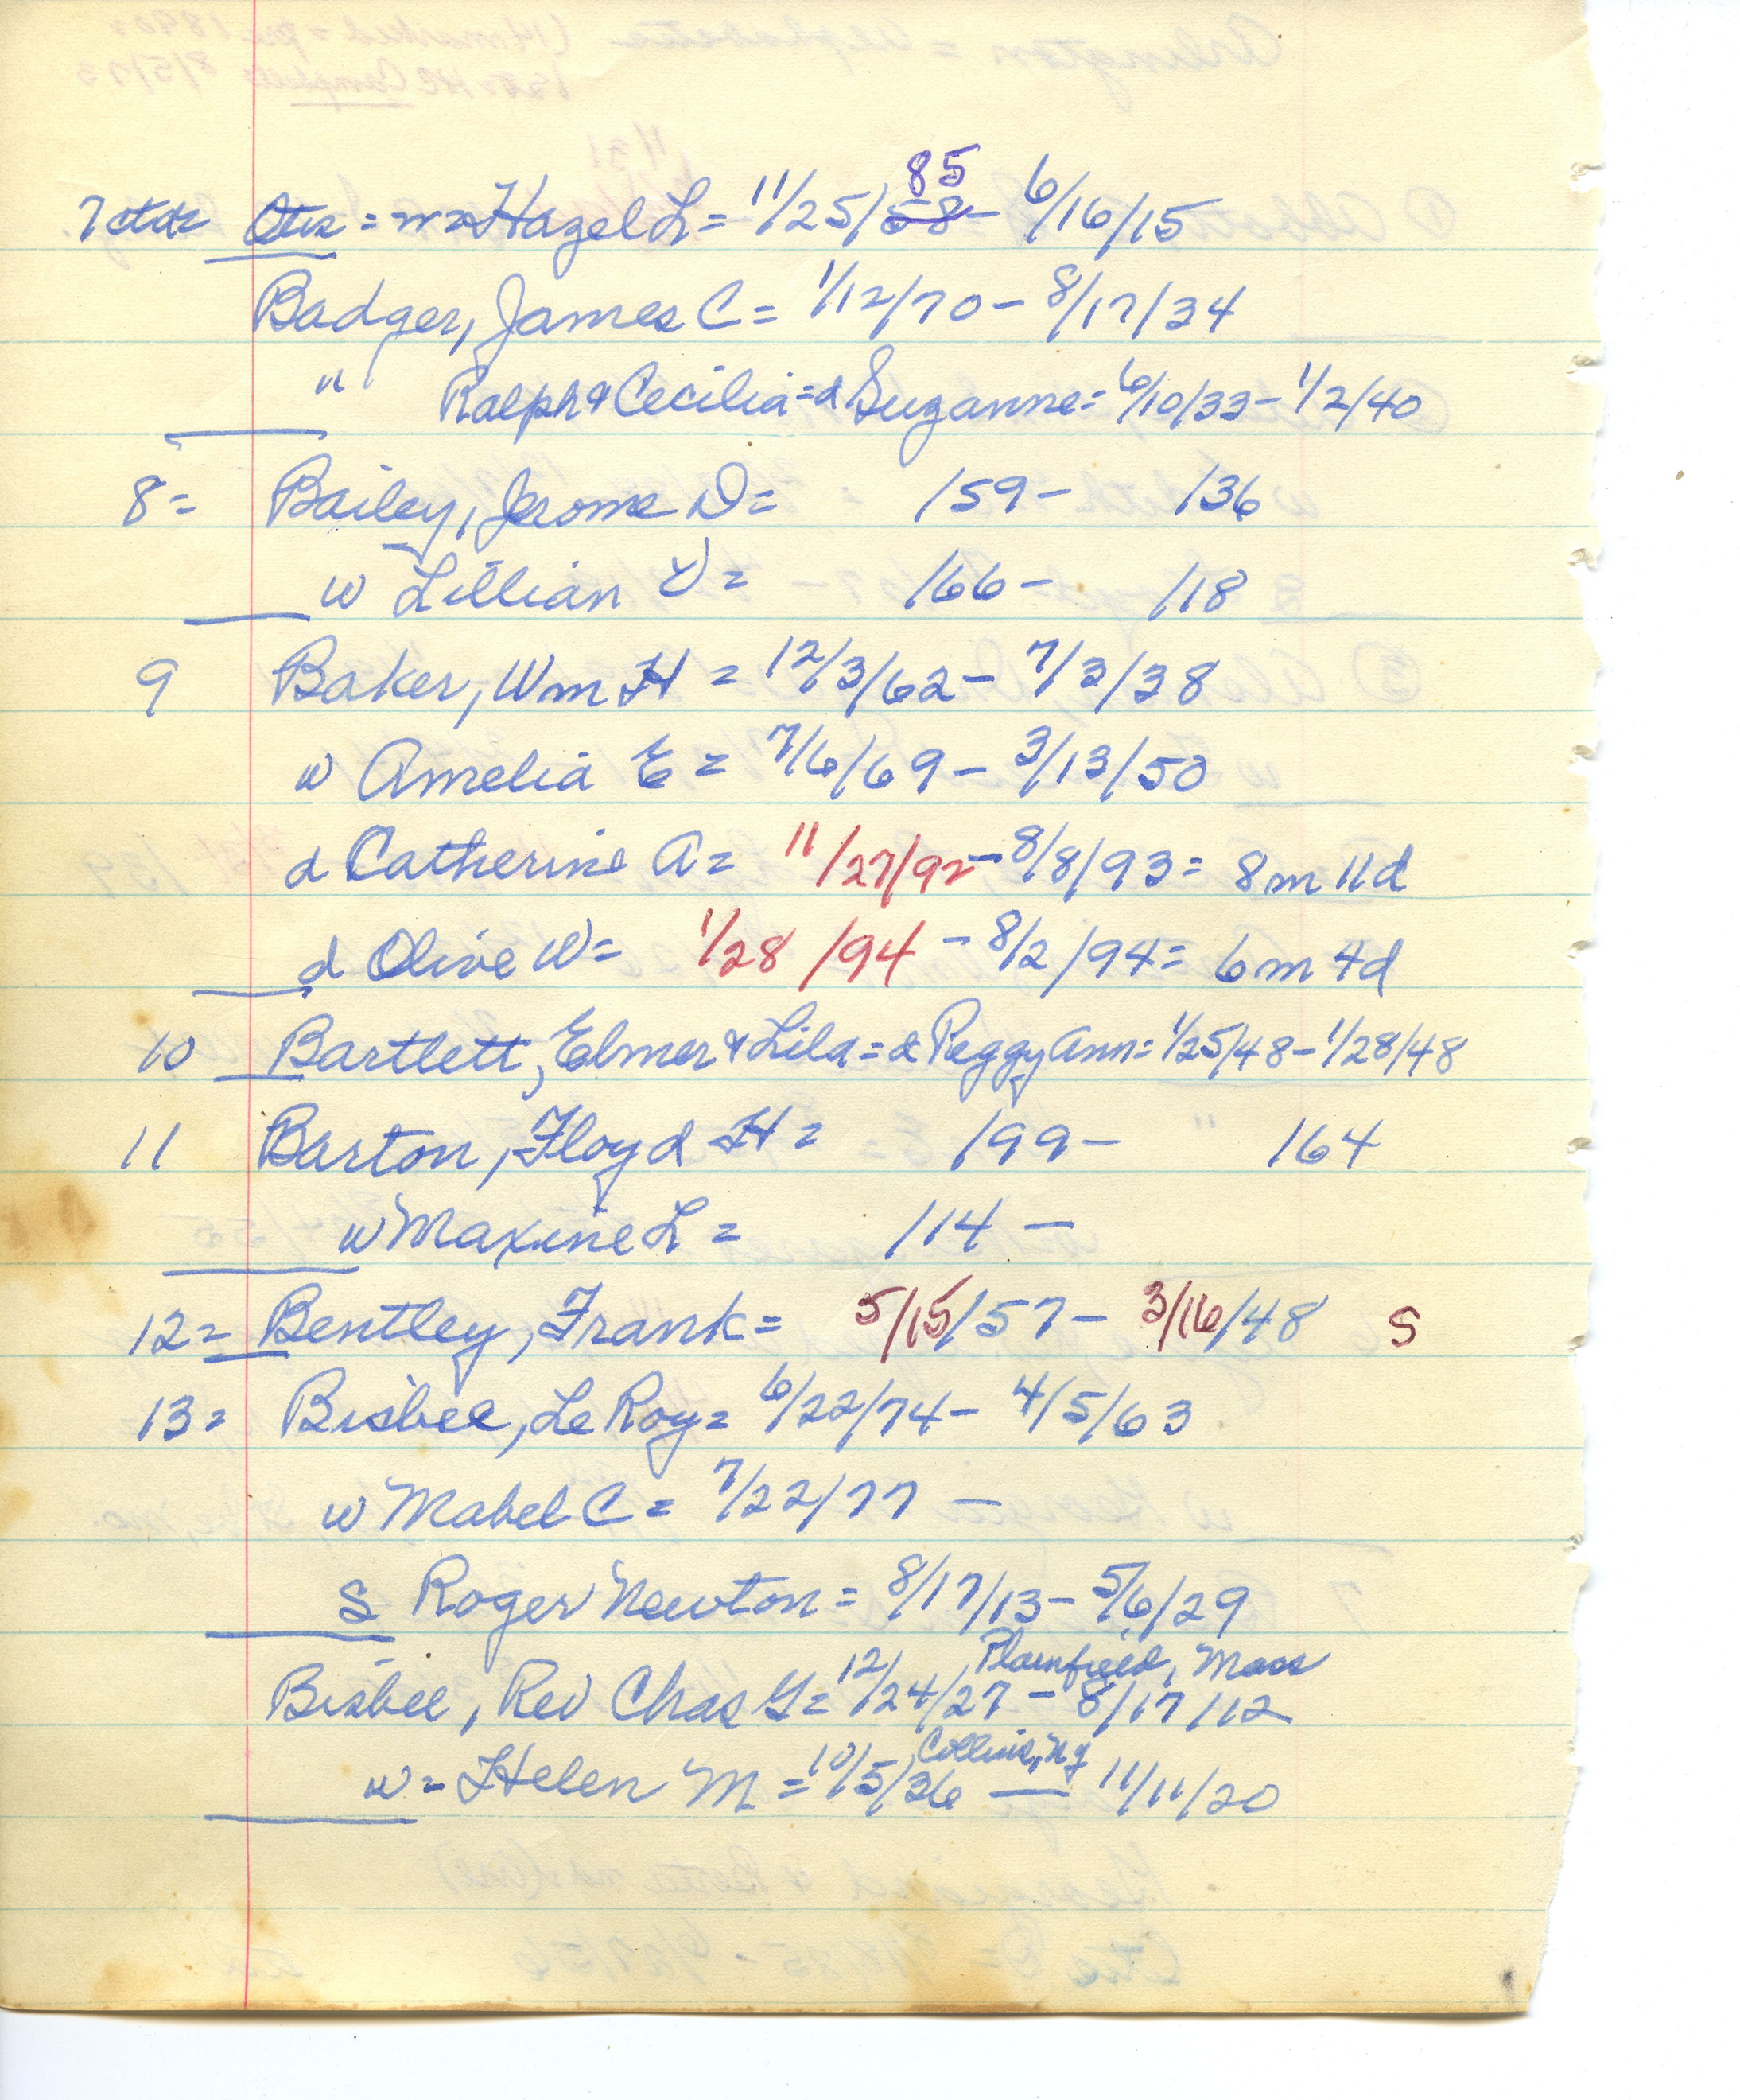 85
7 ctdr Otis = w = Hazel L = 11/25/58 - 6/16/15
Badger, James C = 1/12/70 - 8/17/34
" Ralph & Cecilia = d Suzanne = 6/10/33 - 1/2/40
8 = Bailey, Jerome D = /59 - /36
w Lillian V = /66 - /18
9 Baker, Wm H = 12/3/62 - 7/3/38
w Amelia E = 7/6/69 - 3/13/50
d Catherine A = 11/27/92 - 8/8/93 = 8m 11d
d Olive W = 1/28/94 - 8/2/94 = 6m 4d
10 Bartlett, Elmer & Lila = d Peggy Ann = 1/25/48 - 1/28/48
11 Barton, Floyd H = /99 - /64
w Maxine L = /14 -
12 = Bentley, Frank = 5/15/57 - 3/16/48 S
13 = Bisbee, Le Roy = 6/22/74 - 4/5/63
w Mabel C = 7/22/77 -
s Roger Newton = 8/17/13 - 5/6/29
Plainfield, Mass
Bisbee, Rev Chas G = 12/24/27 - 8/17/12
Collins, NY
w = Helen M = 10/5/36 — 11/11/20